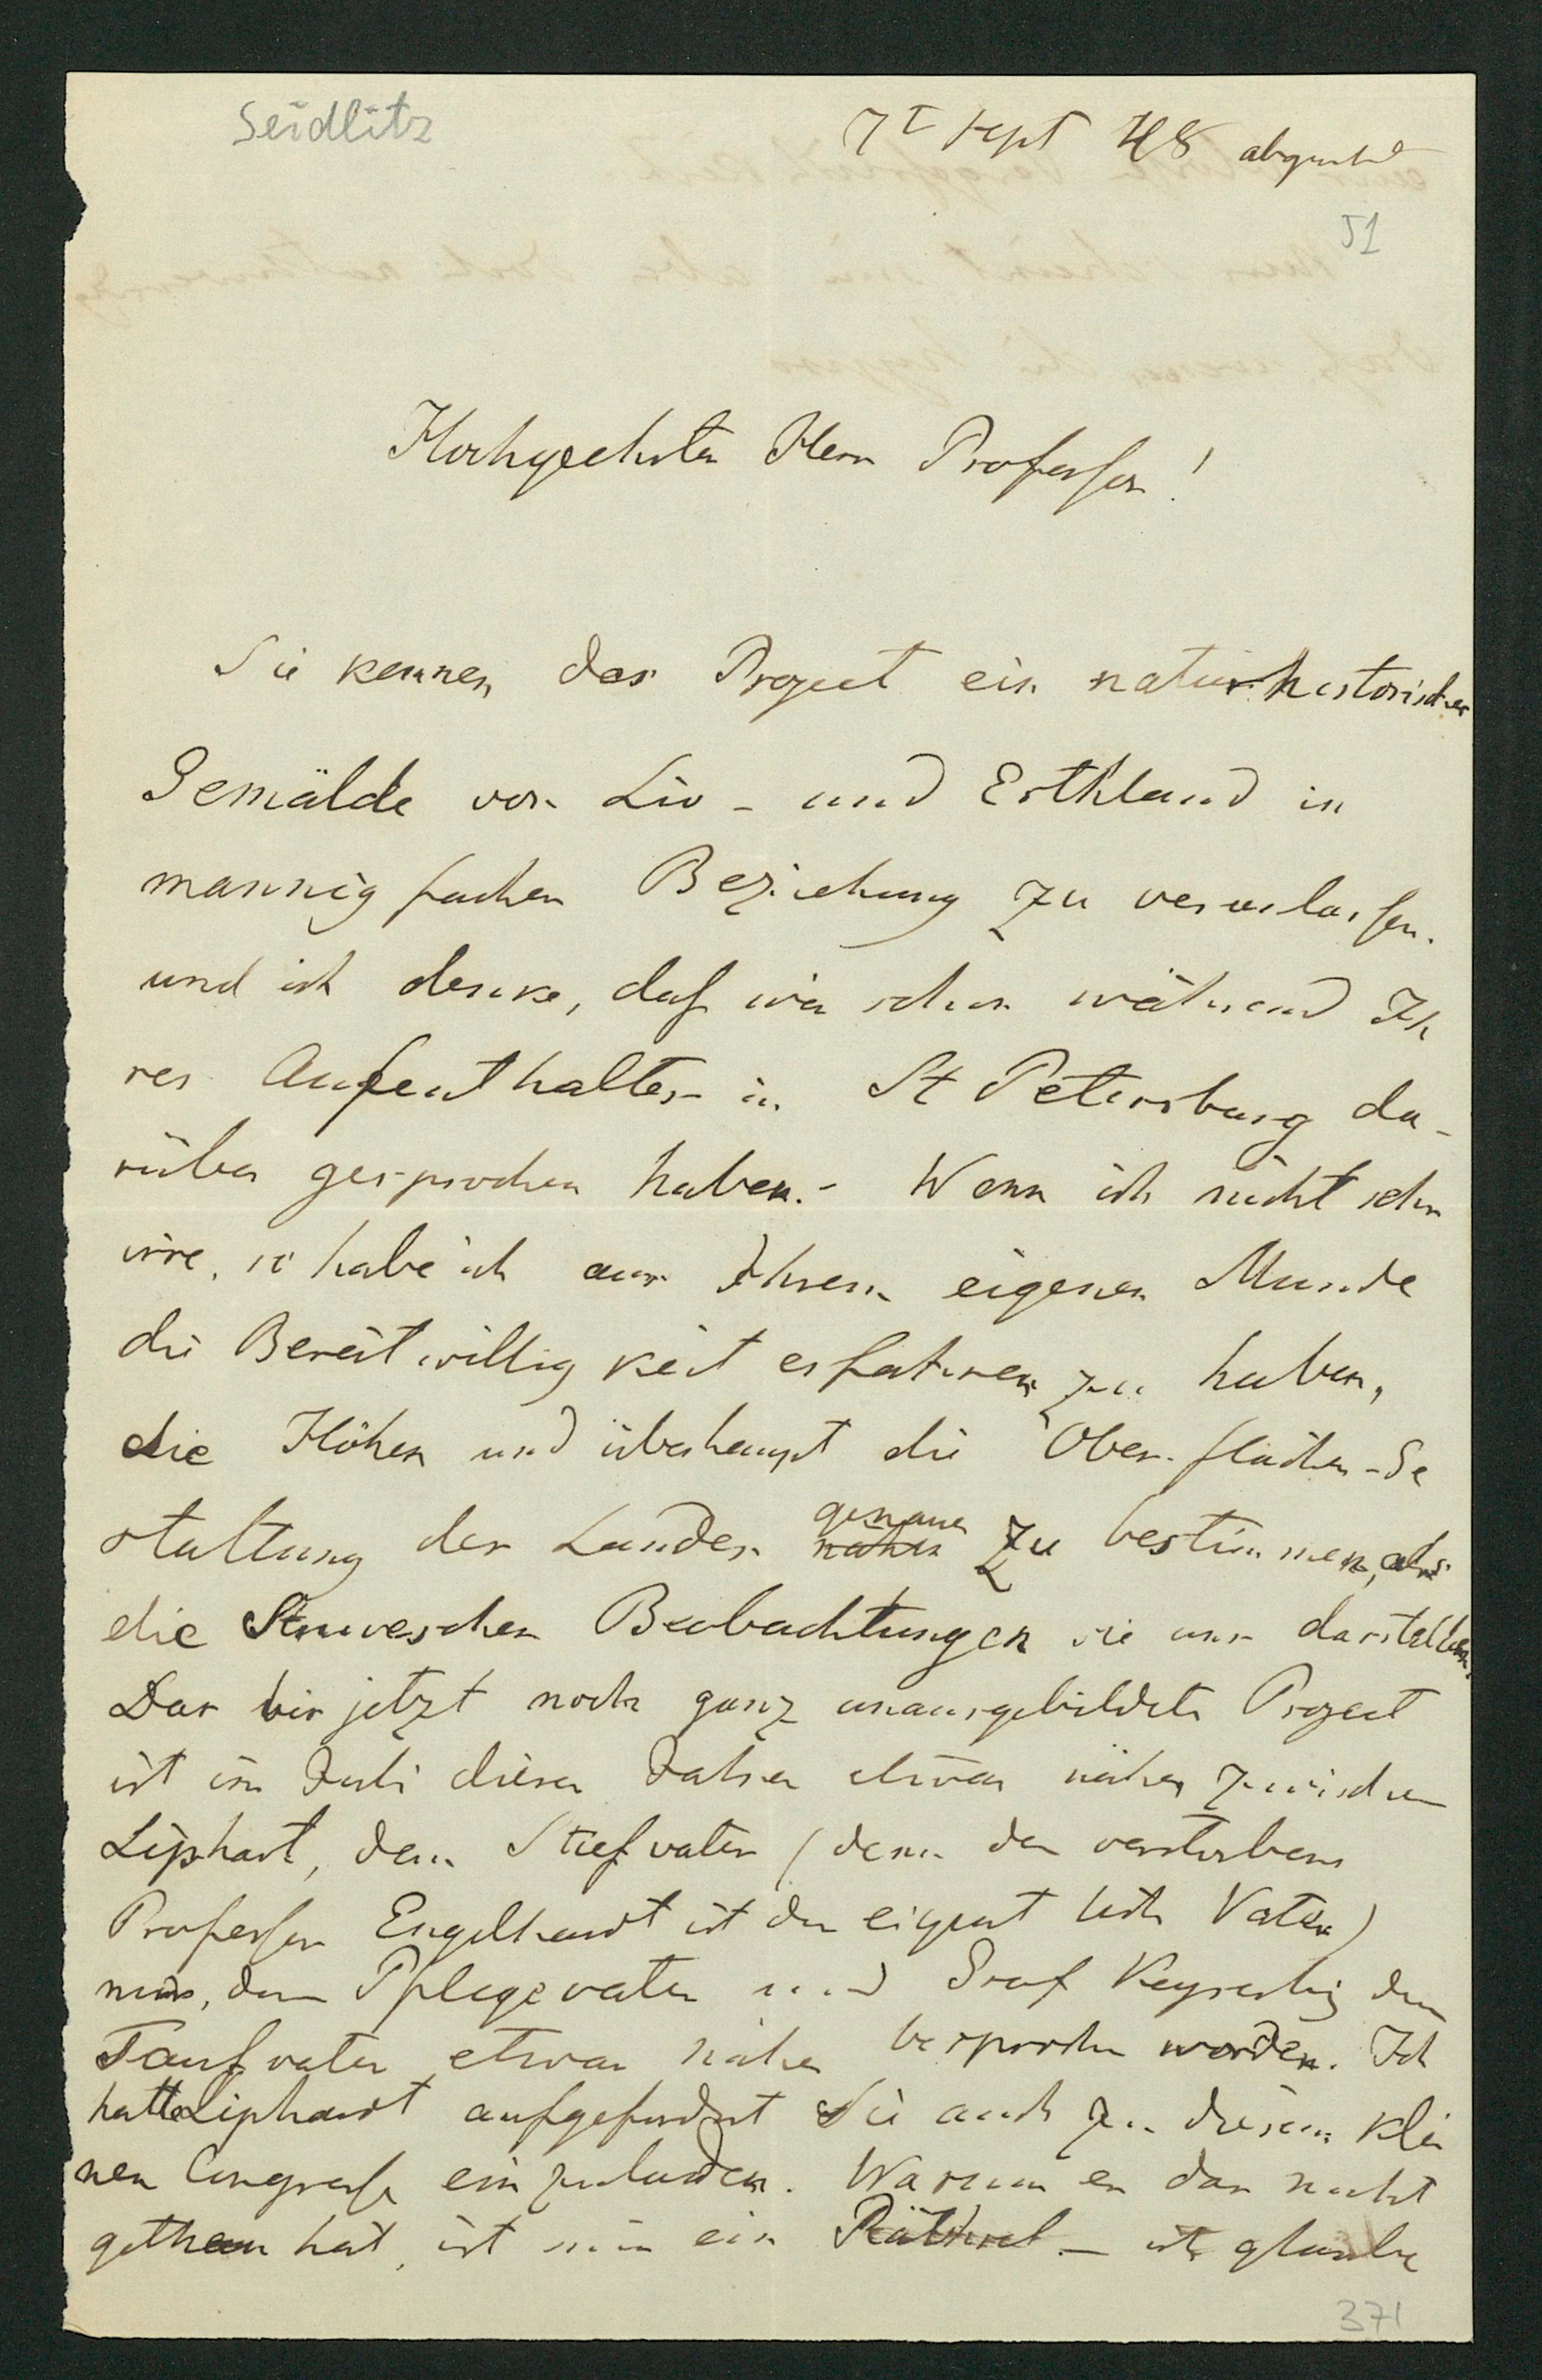 Seidlitz
7t Sept 48
51
Hochgeehrter Herr Professor!
Sie kennen das Project ein naturhistorisches
Gemälde von Liv- und Esthland in
mannigfacher Beziehung zu veranlassen.
und ich denke, daß wir schon während Ih
res Aufenthaltes in St Petersburg da-
rüber gesprochen haben.- Wenn ich nicht sehr
irre, so habe ich aus Ihrem eigenen Munde
die Bereitwilligkeit erfahren zu haben,
die Höhen und überhaupt die Oberflächen-Ge
staltung des Landes genauer zu bestimmen, als
die Struveschen Beobachtungen sie uns darstellen.
Das bis jetzt noch ganz unausgebildete Project
ist im Juli dieses Jahres etwas näher zwischen
Liphart, dem Stiefvater (denn der verstorbene
Professor Engelhardt ist der eigentliche Vater)
mir, dem Pflegevater und Graf Keyserling dem
Taufvater etwas näher besprochen worden. Ich
hatte Liphardt aufgefordert Sie auch zu diesem klei
nen Congresse einzuladen. Warum er das nicht
gethan hat, ist mir ein Räthsel - ich glaube
371